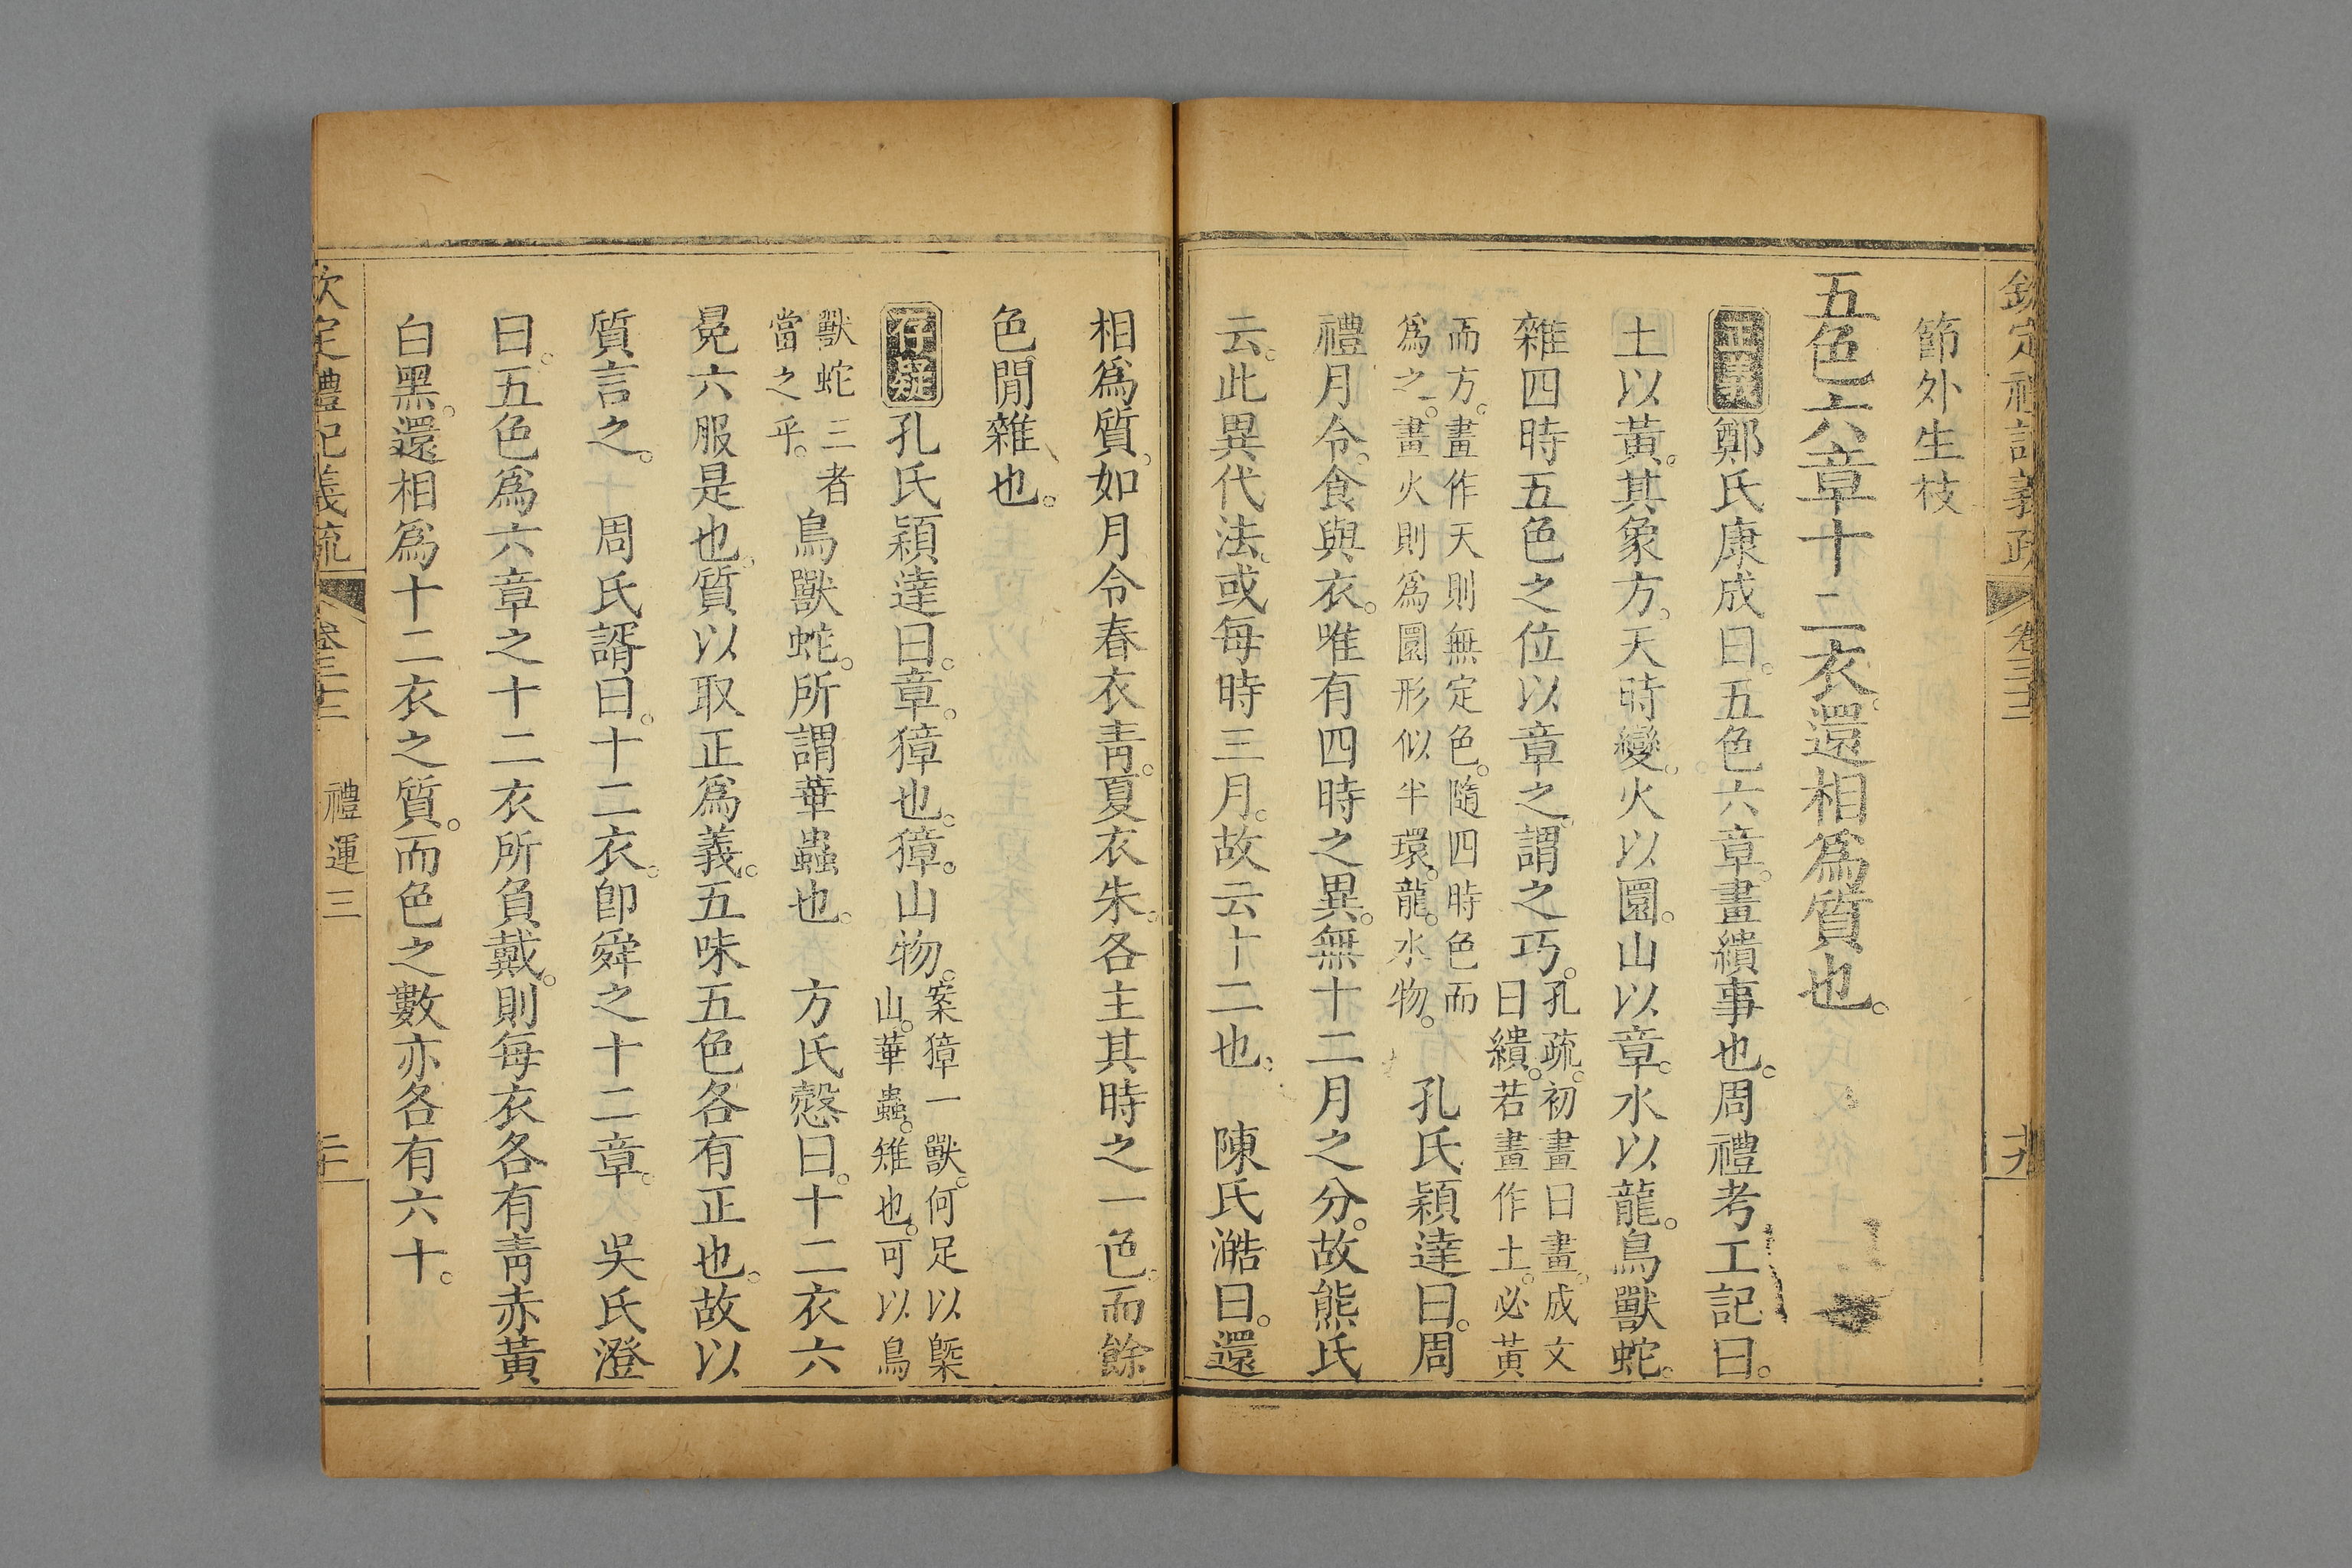 節外生枝
五色六章十二衣還相爲質也。
正義鄭氏康成曰。五色六章。畫繢事也。周禮考工記曰。
土以黃。其象方。天時變。火以圜。山以章。水以龍。鳥獸蛇。
雜四時五色之位以章之。謂之巧。
孔疏。初畫曰畫。成文
曰繢。若畫作土。必黃
而方。畫作天則無定色。隨四時色而
爲之。畫火則爲圜形似半環。龍。水物。
孔氏穎達曰。周
禮月令。食與衣。唯有四時之異。無十二月之分。故熊氏
云。此異代法。或每時三月。故云十二也。 陳氏澔曰。還
相爲質。如月令春衣青。夏衣朱。各主其時之一色。而餘
色閒雜也。
存疑孔氏穎達曰。章。獐也。獐。山物。
案獐一獸。何足以槩
山。華蟲。雉也。可以鳥
獸蛇三者
當之乎。
鳥獸蛇。所謂華蟲也。 方氏慤曰。十二衣六
冕六服是也。質以取正爲義。五味五色各有正也。故以
質言之。 周氏諝曰。十二衣。卽舜之十二章。 吳氏澄
曰。五色爲六章之十二衣所負戴。則每衣各有靑赤黃
白黑。還相爲十二衣之質。而色之數亦各有六十。
欽定禮記義疏 卷三十二 禮運三